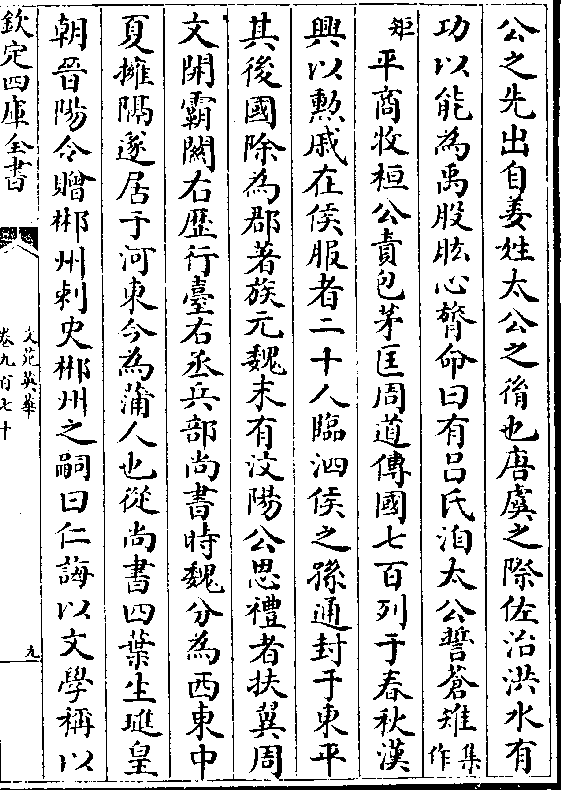 公之先出自姜姓太公之後也唐虞之際佐治洪水有
功以能為禹股肱心膂命曰有呂氏洎太公誓蒼雉集作
矩平商牧桓公責包茅匡周道傳國七百列于春秋漢
興以勲戚在侯服者二十人臨泗侯之孫通封于東平
其後國除為郡著族元魏末有汶陽公思禮者扶翼周
文開霸闕右歴行臺右丞兵部尚書時魏分為西東中
夏擁隔遂居于河東今為蒲人也從尚書四葉生珽皇
朝晉陽令贈郴州刺史郴州之嗣曰仁誨以文學稱以
欽定四庫全書
文苑英華
卷九百七十
九